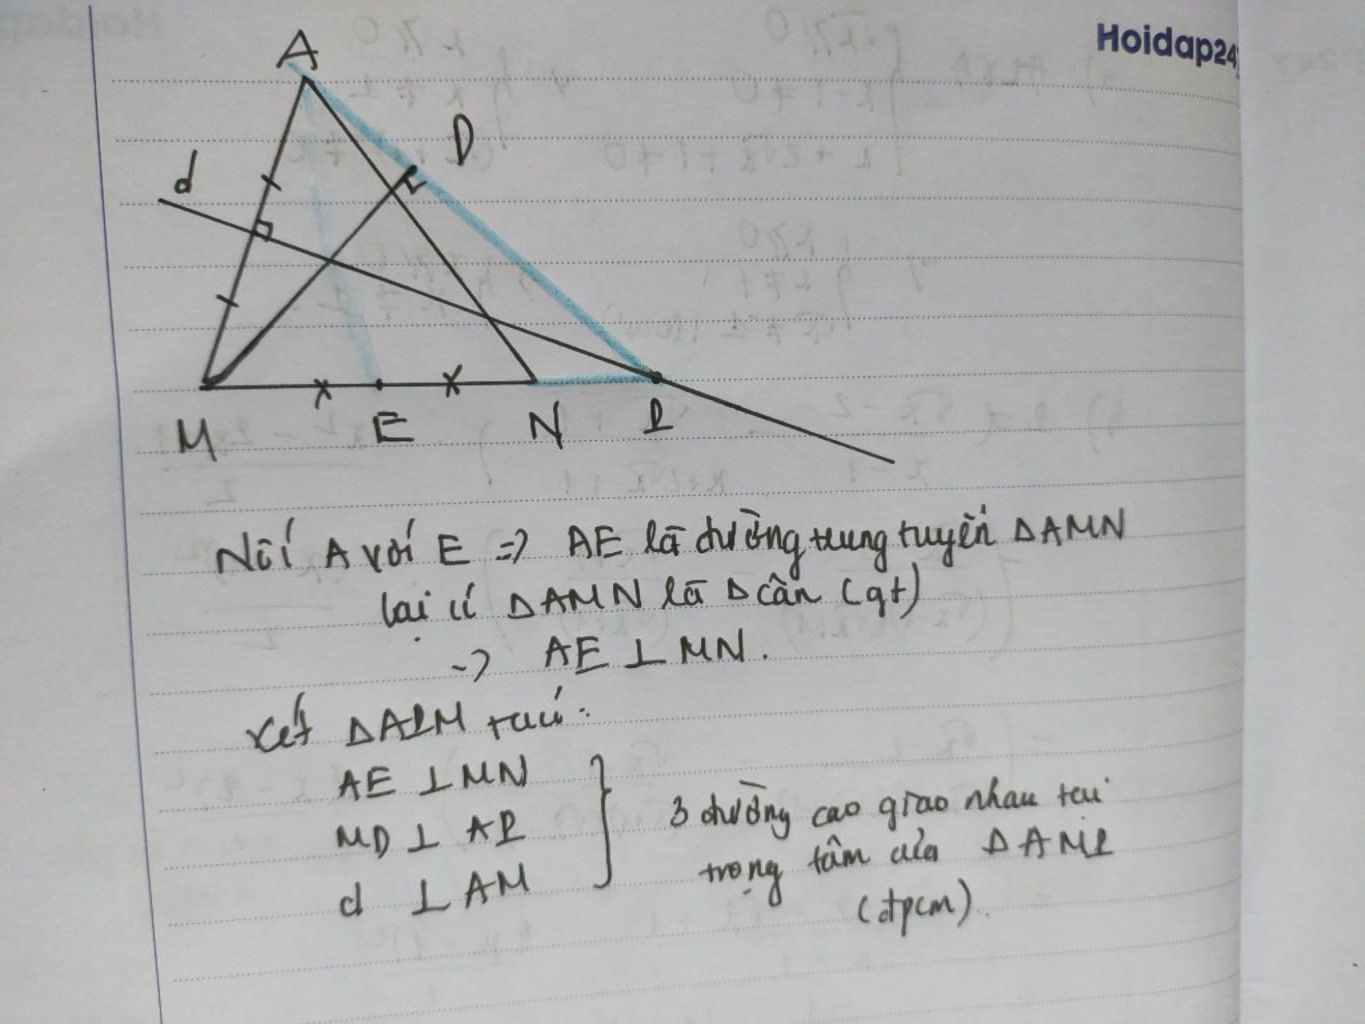 Hoidap24
A
D
d
M
E
N
P
Nối A với E => AE là đường trung tuyến ΔAMN
lại có ΔAMN là Δ cân (gt)
-> AE ⊥ MN.
Xét ΔAPM ta có:
AE ⊥ MN
MD ⊥ AP
d ⊥ AM
3 đường cao giao nhau tại
trọng tâm của ΔAMP
(đpcm).